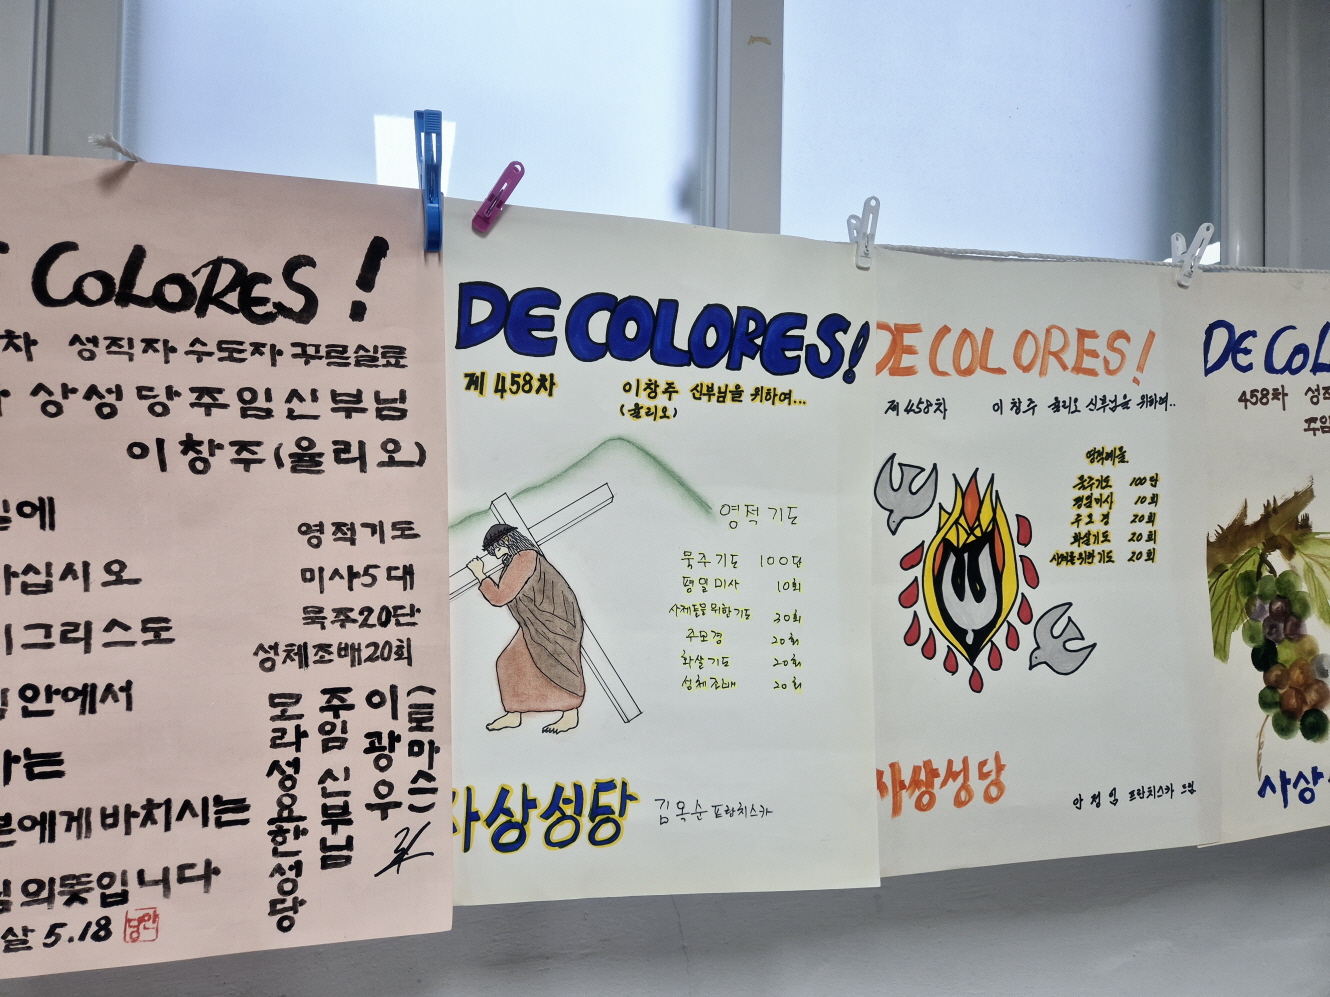 COLORES!
차 성직자수도자 꾸르실료
상성당주임신부님
이창주(율리오)
에
십시오
그리스도
안에서
는
에게 바치시는
의뜻입니다
살 5.18
영적기도
미사5대
묵주20단
성체조배20회
모라성요한성당
주임신부님
이광우
(토마스)
DE COLORES!
제 458차
이창주 신부님을 위하여...
(율리오)
영적 기도
묵주기도 100단
평일미사 10회
사제들을 위한기도 30회
주모경 20회
화살기도 20회
성체조배 20회
사상성당
김옥순 프란치스카
DE COLORES!
제 458차
이창주 율리오 신부님을 위하여..
영적예물
묵주기도 100단
평일미사 10회
주모경 20회
화살기도 20회
사제를위한기도 20회
사상성당
안정임 프란치스카 드림
DE COL
458차 성직
주임
사상